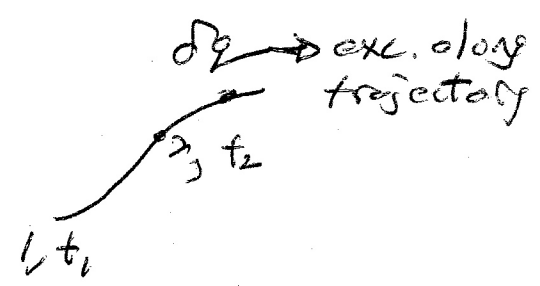 δq → exc. along
trajectory
2, t₂
1, t₁